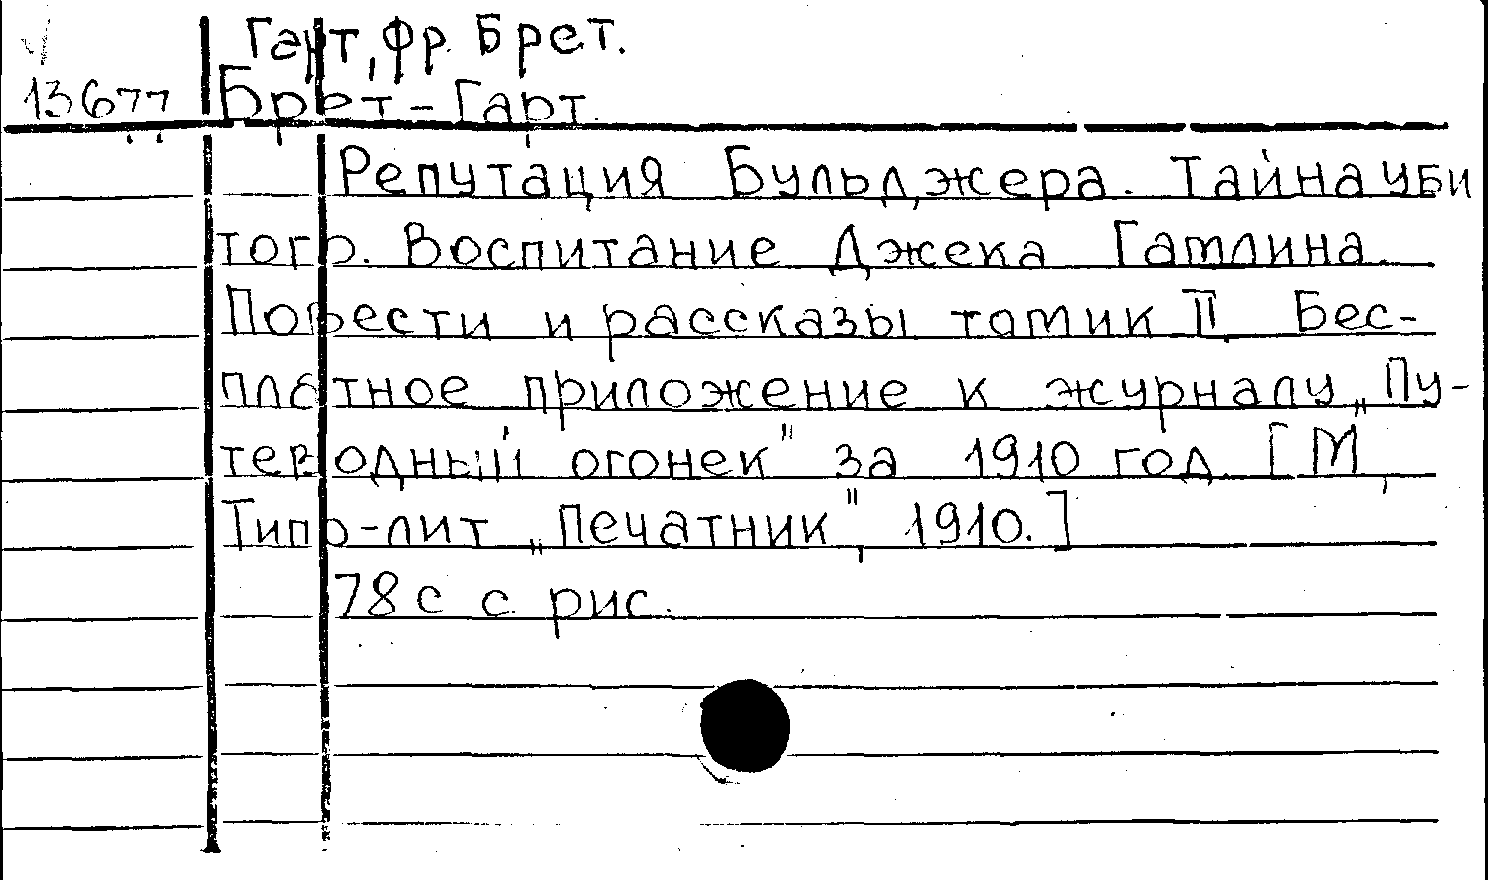 Гарт, Фр. Брет.
13677 Брет-Гарт.
Репутация Бульджера. Тайна уби
того. Воспитание Джека Гатлина.
Повести и рассказы томик II. Бес-
платное приложение к журналу „Пу-
теводный огонек" за 1910 год. [М,
Типо-лит „Печатник", 1910.]
78 с с. рис.